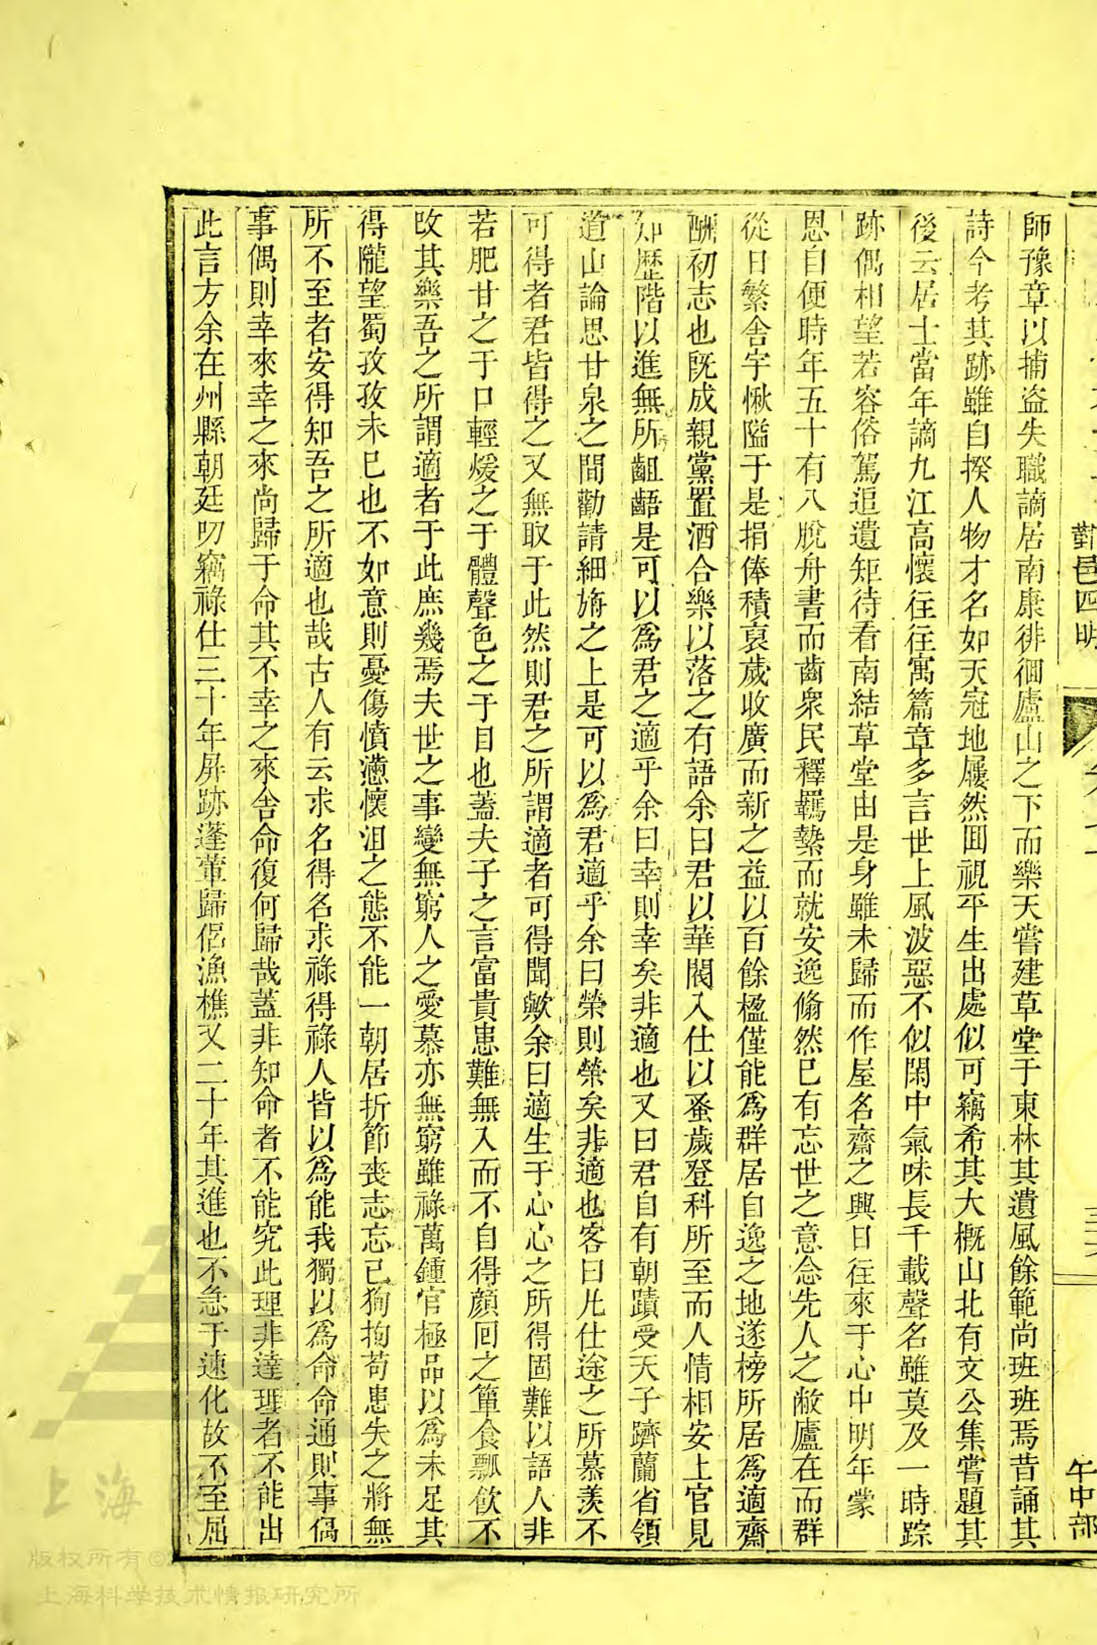 師豫章以捕盗失職謫居南康徘徊廬山之下而樂天嘗建草堂于東林其遺風餘範尚班班焉昔誦其
詩今考其跡雖自揆人物才名如天冦地屨然囬視平生出處似可竊希其大概山北有文公集嘗題其
後云居士當年謫九江高懷往往寓篇章多言世上風波惡不似閑中氣味長千載聲名雖莫及一時踪
跡偶相望若容俗駕追遺矩待看南結草堂由是身雖未歸而作屋名齋之興日往來于心中明年蒙
恩自便時年五十有八脫舟書而齒衆民釋羈縶而就安逸翛然已有忘世之意念先人之敝廬在而群
從日繁舍宇愀隘于是捐俸積裒歲收廣而新之益以百餘楹僅能爲群居自逸之地遂榜所居爲適齋
酬初志也旣成親黨置酒合樂以落之有語余曰君以華閥入仕以蚤歲登科所至而人情相安上官見
知歷階以進無所齟齬是可以爲君之適乎余曰幸則幸矣非適也又曰君自有朝蹟受天子躋蘭省領
道山論思甘泉之間勸請細旃之上是可以爲君適乎余曰榮則榮矣非適也客曰凡仕途之所慕羡不
可得者君皆得之又無取于此然則君之所謂適者可得聞歟余曰適生于心心之所得固難以語人非
若肥甘之于口輕煖之于體聲色之于目也蓋夫子之言富貴患難無入而不自得顔回之簞食瓢飮不
改其樂吾之所謂適者于此庶幾焉夫世之事變無窮人之愛慕亦無窮雖祿萬鍾官極品以爲未足其
得隴望蜀孜孜未已也不如意則憂傷憤懣懷沮之態不能一朝居折節喪志忘已狥拘苟患失之將無
所不至者安得知吾之所適也哉古人有云求名得名求祿得祿人皆以爲能我獨以爲命命通則事偶
事偶則幸來幸之來尚歸于命其不幸之來舍命復何歸哉蓋非知命者不能究此理非達理者不能出
此言方余在州縣朝廷叨竊祿仕三十年屏跡蓬蓽歸侶漁樵又二十年其進也不急于速化故不至屈
鄞邑四明
午中部
上海
版权所有©
上海科学技术情报研究所